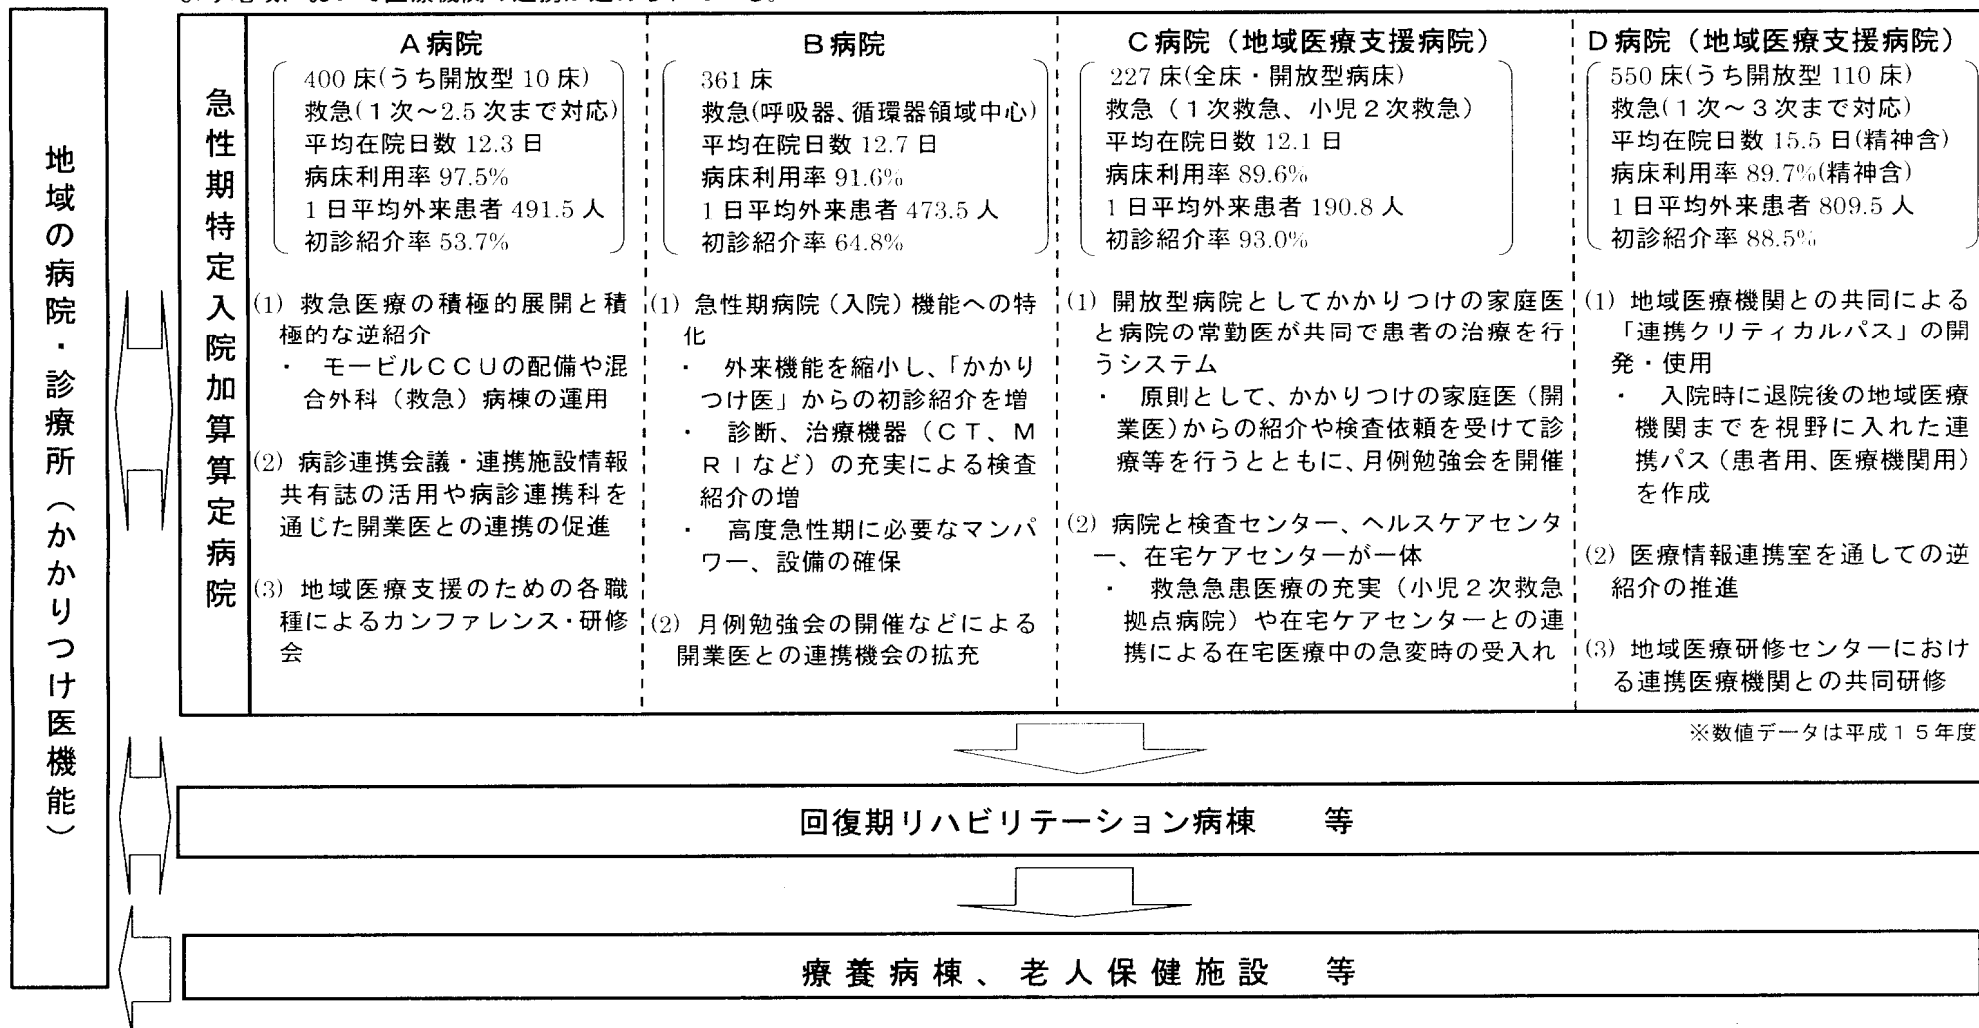 地域の病院・診療所（かかりつけ医機能）
急性期特定入院加算算定病院
A病院
400床(うち開放型10床)
救急(1次～2.5次まで対応)
平均在院日数12.3日
病床利用率97.5%
1日平均外来患者491.5人
初診紹介率53.7%
(1) 救急医療の積極的展開と積
極的な逆紹介
・ モービルCCUの配備や混
合外科（救急）病棟の運用
(2) 病診連携会議・連携施設情報
共有誌の活用や病診連携科を
通じた開業医との連携の促進
(3) 地域医療支援のための各職
種によるカンファレンス・研修
会
B病院
361床
救急(呼吸器、循環器領域中心)
平均在院日数12.7日
病床利用率91.6%
1日平均外来患者473.5人
初診紹介率64.8%
(1) 急性期病院（入院）機能への特
化
・ 外来機能を縮小し、「かかり
つけ医」からの初診紹介を増
・ 診断、治療機器（CT、M
RIなど）の充実による検査
紹介の増
・ 高度急性期に必要なマンパ
ワー、設備の確保
(2) 月例勉強会の開催などによる
開業医との連携機会の拡充
C病院（地域医療支援病院）
227床(全床・開放型病床)
救急（1次救急、小児2次救急）
平均在院日数12.1日
病床利用率89.6%
1日平均外来患者190.8人
初診紹介率93.0%
(1) 開放型病院としてかかりつけの家庭医
と病院の常勤医が共同で患者の治療を行
うシステム
・ 原則として、かかりつけの家庭医（開
業医）からの紹介や検査依頼を受けて診
療等を行うとともに、月例勉強会を開催
(2) 病院と検査センター、ヘルスケアセンタ
ー、在宅ケアセンターが一体
・ 救急急患医療の充実（小児2次救急
拠点病院）や在宅ケアセンターとの連
携による在宅医療中の急変時の受入れ
D病院（地域医療支援病院）
550床(うち開放型110床)
救急(1次～3次まで対応)
平均在院日数15.5日(精神含)
病床利用率89.7%(精神含)
1日平均外来患者809.5人
初診紹介率88.5%
(1) 地域医療機関との共同による
「連携クリティカルパス」の開
発・使用
・ 入院時に退院後の地域医療
機関までを視野に入れた連
携パス（患者用、医療機関用）
を作成
(2) 医療情報連携室を通しての逆
紹介の推進
(3) 地域医療研修センターにおけ
る連携医療機関との共同研修
※数値データは平成15年度
回復期リハビリテーション病棟 等
療養病棟、老人保健施設 等